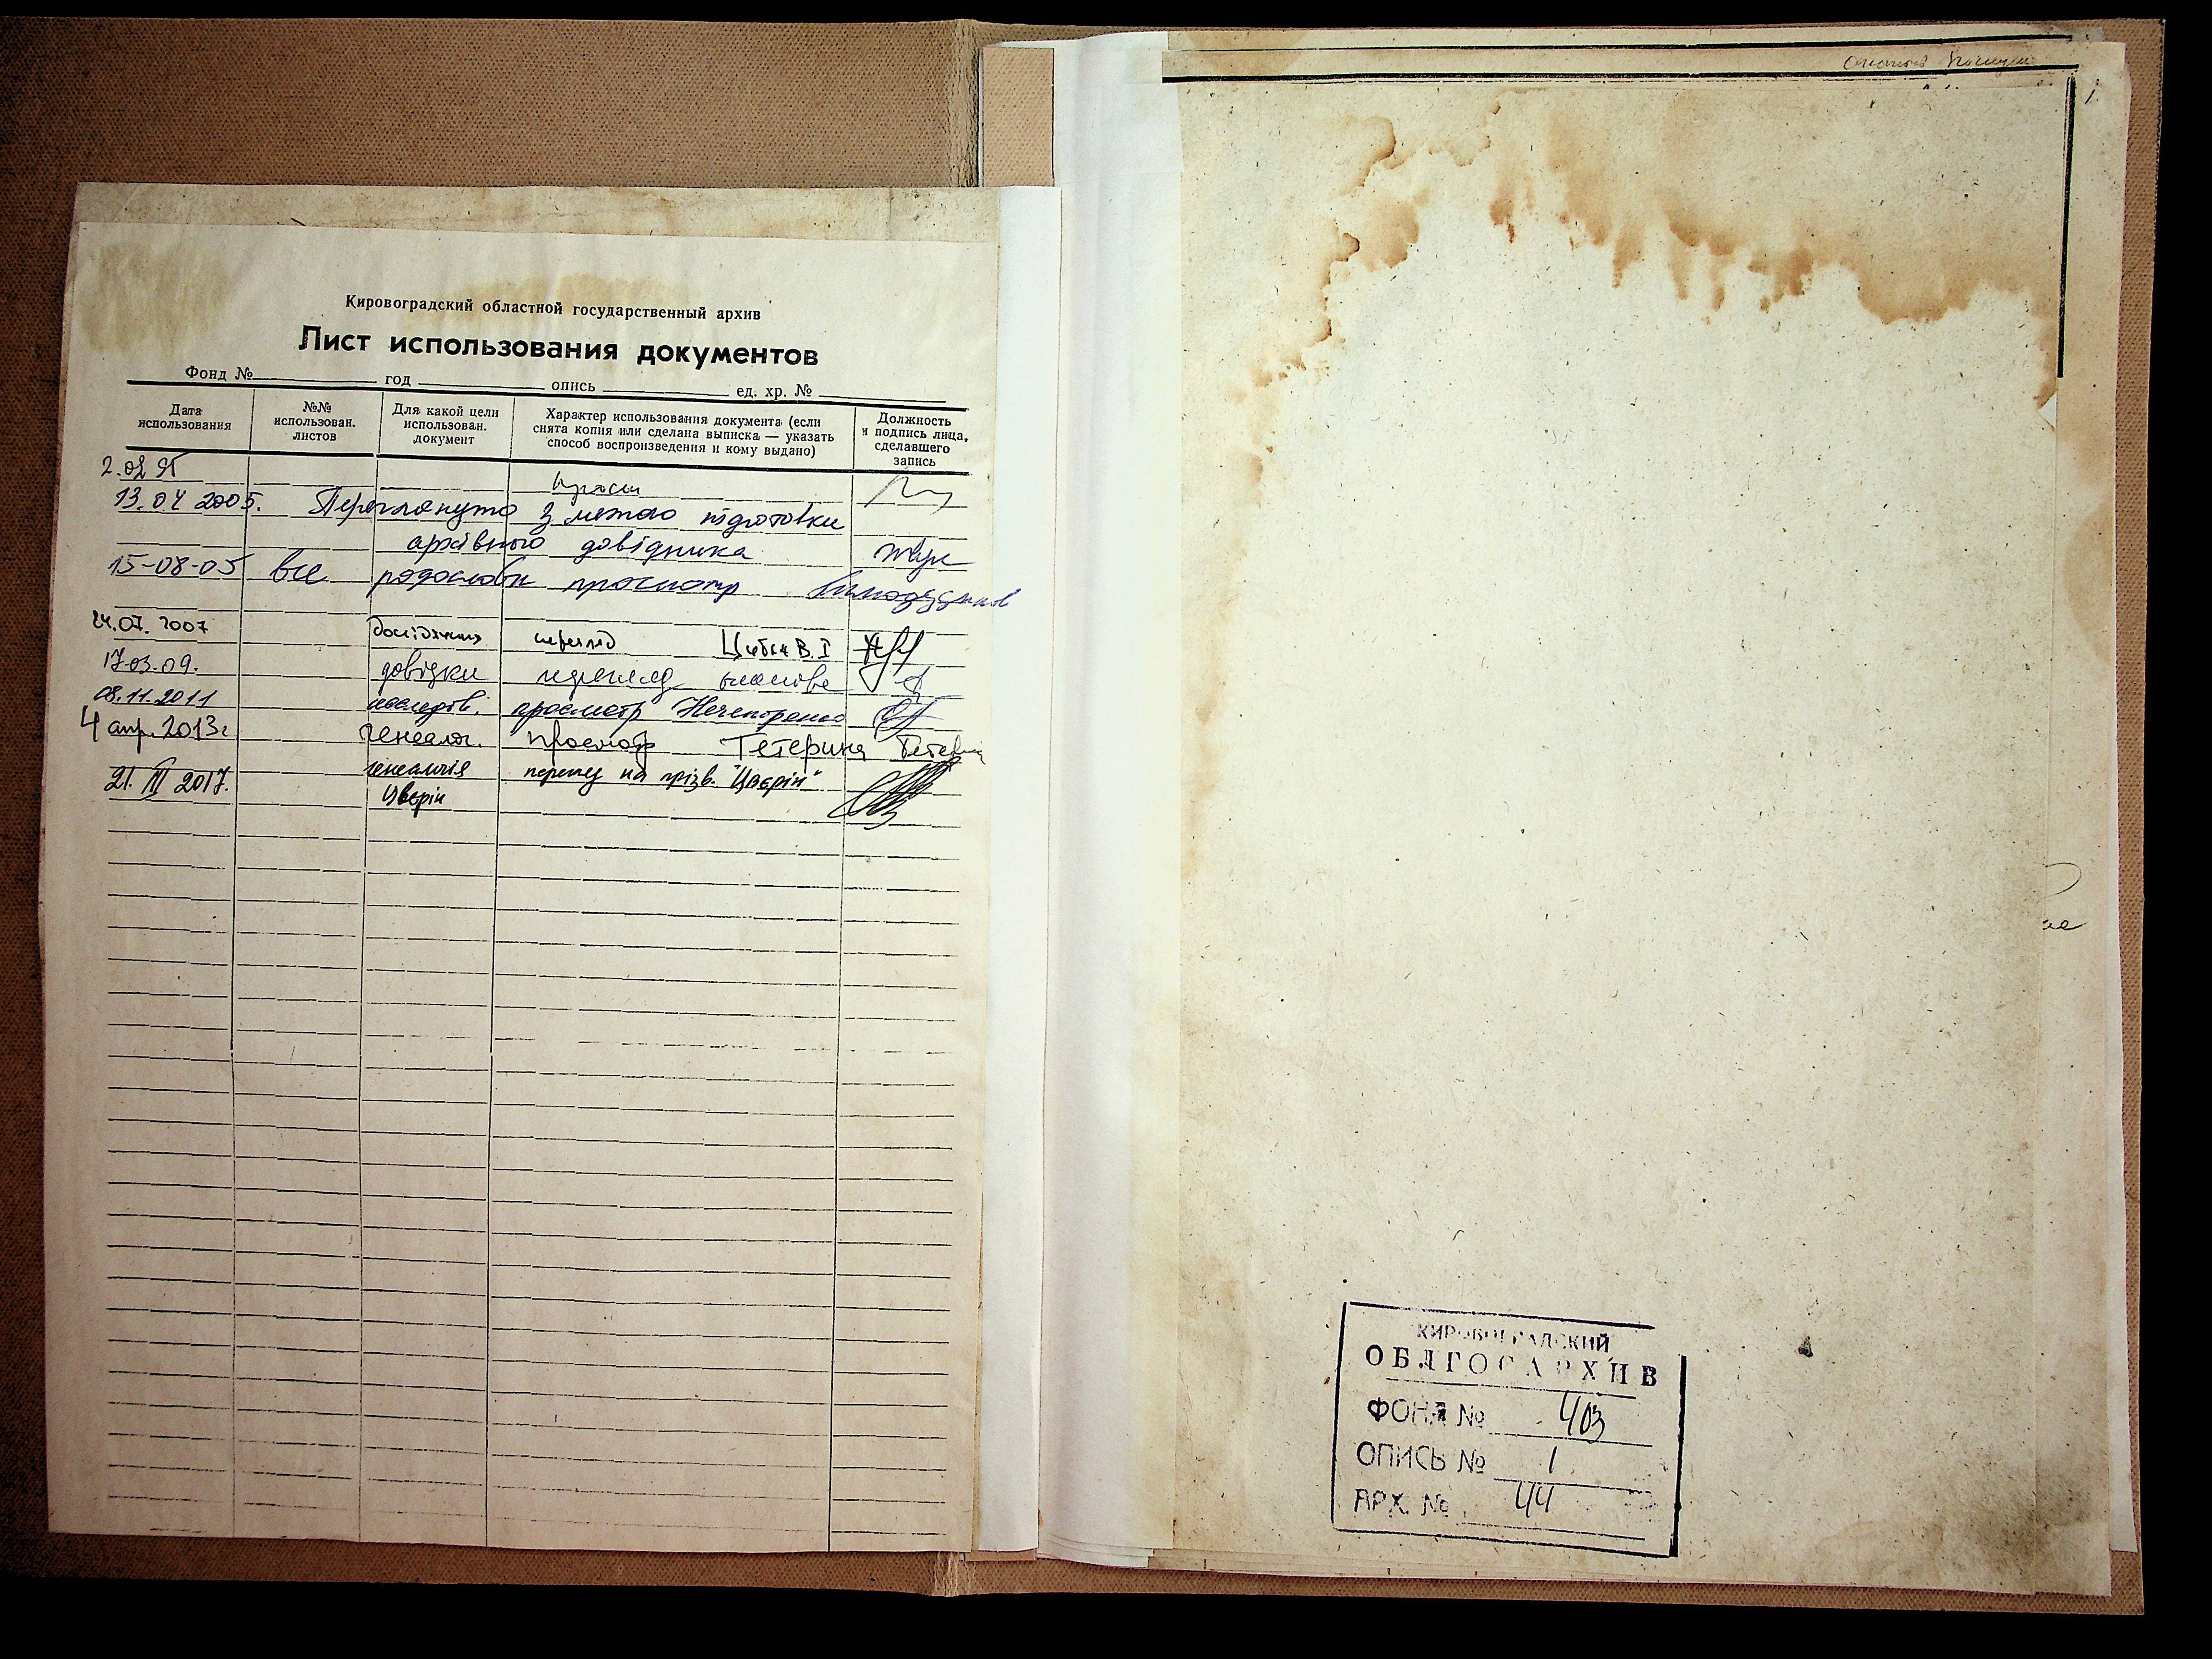 Кировоградский областной государственный архив
Лист использования документов
Фонд № год опись ед. хр. №
Дата использования
№№ использован. листов
Для какой цели использован. документ
Характер использования документа (если снята копия или сделана выписка — указать способ воспроизведения и кому выдано)
Должность и подпись лица, сделавшего запись
2.02 95
13.04 2005. Переглянуто з метою підготовки
архівного довідника Жук
15-08-05 все просмотр
24.07.2007 перегляд В.І
17-03-09. довідки перегляд
08.11.2011 просмотр
4 апр. 2013г генеалог. просмотр Тетерина
21. III 2017. генеалогія на прізв. "Цвєрін"
Цвєрін
1.
КИРОВОГРАДСКИЙ
ОБЛГОСАРХИВ
ФОНД № 403
ОПИСЬ № 1
АРХ. № 44